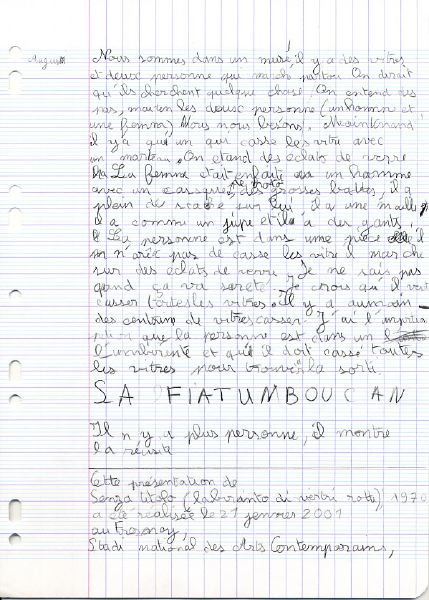 August
Nous sommes dans un musé, il y a des vitres
et deux personne qui march partou On dirait
qu'ils cherchent quelque chose. On entend des
pas, les deux personne (un homme et
une femme) Nous nous besons. Maintenand
il y a que un qui casse les vitre avec
un marteau. On etand des éclats de verre
La femme était enfaite un homme
avec un casque, de grosses bottes, il a
plein de scare sur lui il a une maille
il a comme un jupe et il a des gants.
La personne est dans une pièce il
n'arèt pas de casse les vitre il marche
sur des éclats de verre. Je ne sais pas
quand ça va sareté. Je crois qu'il vat
casser toutes les vitres. Il y a aumoin
des centaine de vitres casser. J'ai l'impression
que la personne est dans un
l'inmbirinte et que il doit cassé toutes
les vitres pour trouver la sorti.
SA FIATUMBOUCAN
Il n y a plus personne, il montre
la réusite
Cette présentation de
Senza titolo (labirinto di vetri rotti), 1970
a été réalisée le 21 janvier 2001
au Fresnoy,
Studi national des Arts Contemporains,